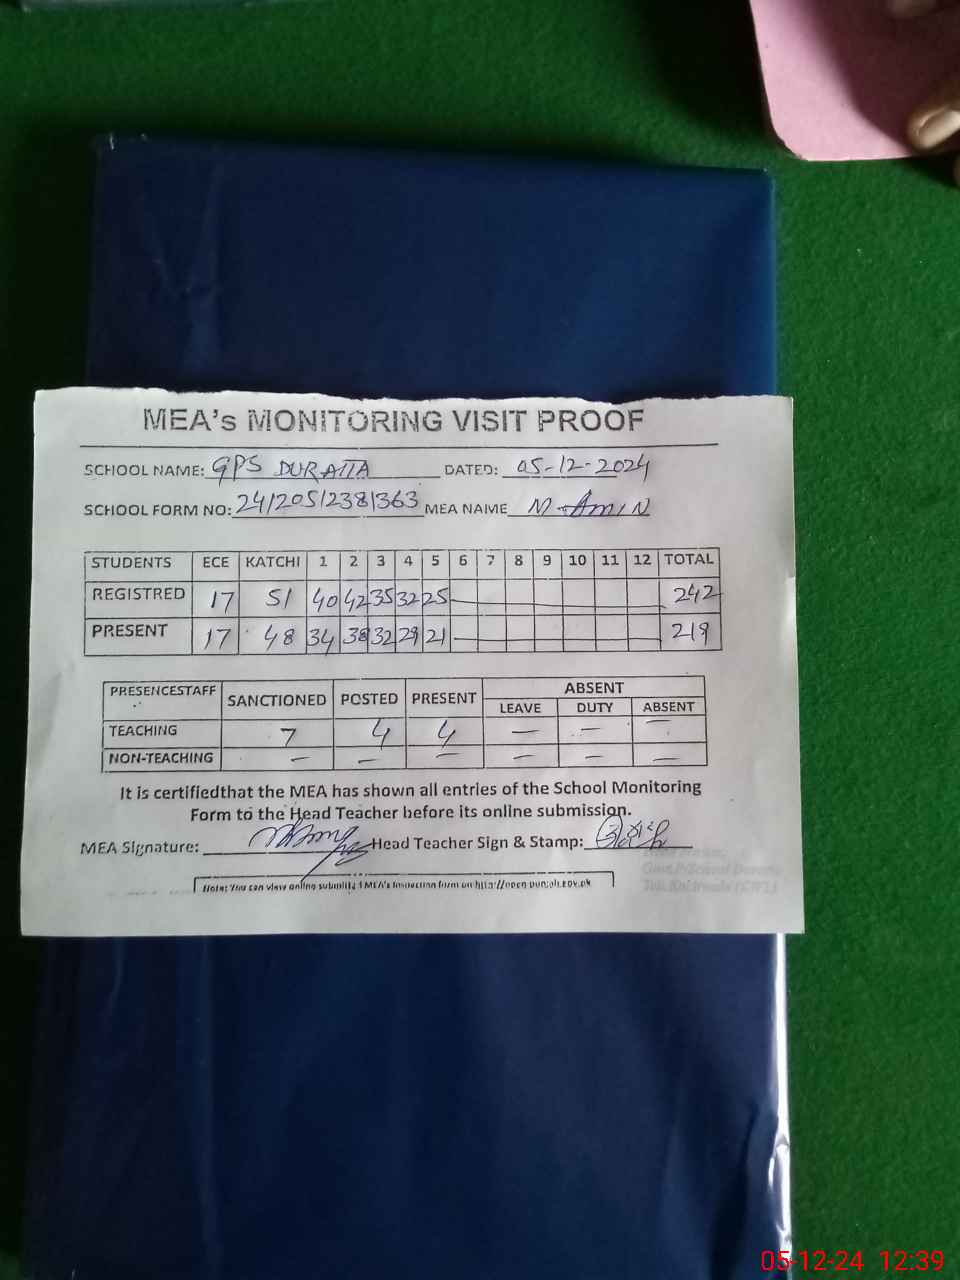 MEA's MONITORING VISIT PROOF
SCHOOL NAME: GPS DURATTA DATED: 05-12-2024
SCHOOL FORM NO: 24120512381363 MEA NAME M. AMIN
STUDENTS ECE KATCHI 1 2 3 4 5 6 7 8 9 10 11 12 TOTAL
REGISTRED 17 51 40 42 35 32 25 242
PRESENT 17 48 34 38 32 29 21 219
PRESENCESTAFF SANCTIONED POSTED PRESENT ABSENT
LEAVE DUTY ABSENT
TEACHING 7 4 4 — — —
NON-TEACHING — — — — — —
It is certifiedthat the MEA has shown all entries of the School Monitoring
Form to the Head Teacher before its online submission.
MEA Signature: Head Teacher Sign & Stamp:
Note: You can view online submitted MEA's Inspection form on http://open.punjab.gov.pk
05-12-24 12:39